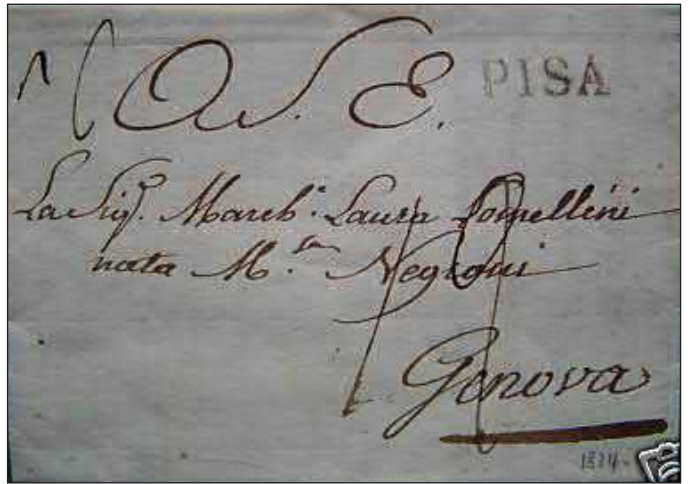 A S. E. PISA
La Sig.ª March.ª Laura Lomellini
nata M.sa Negroni
Genova
1824